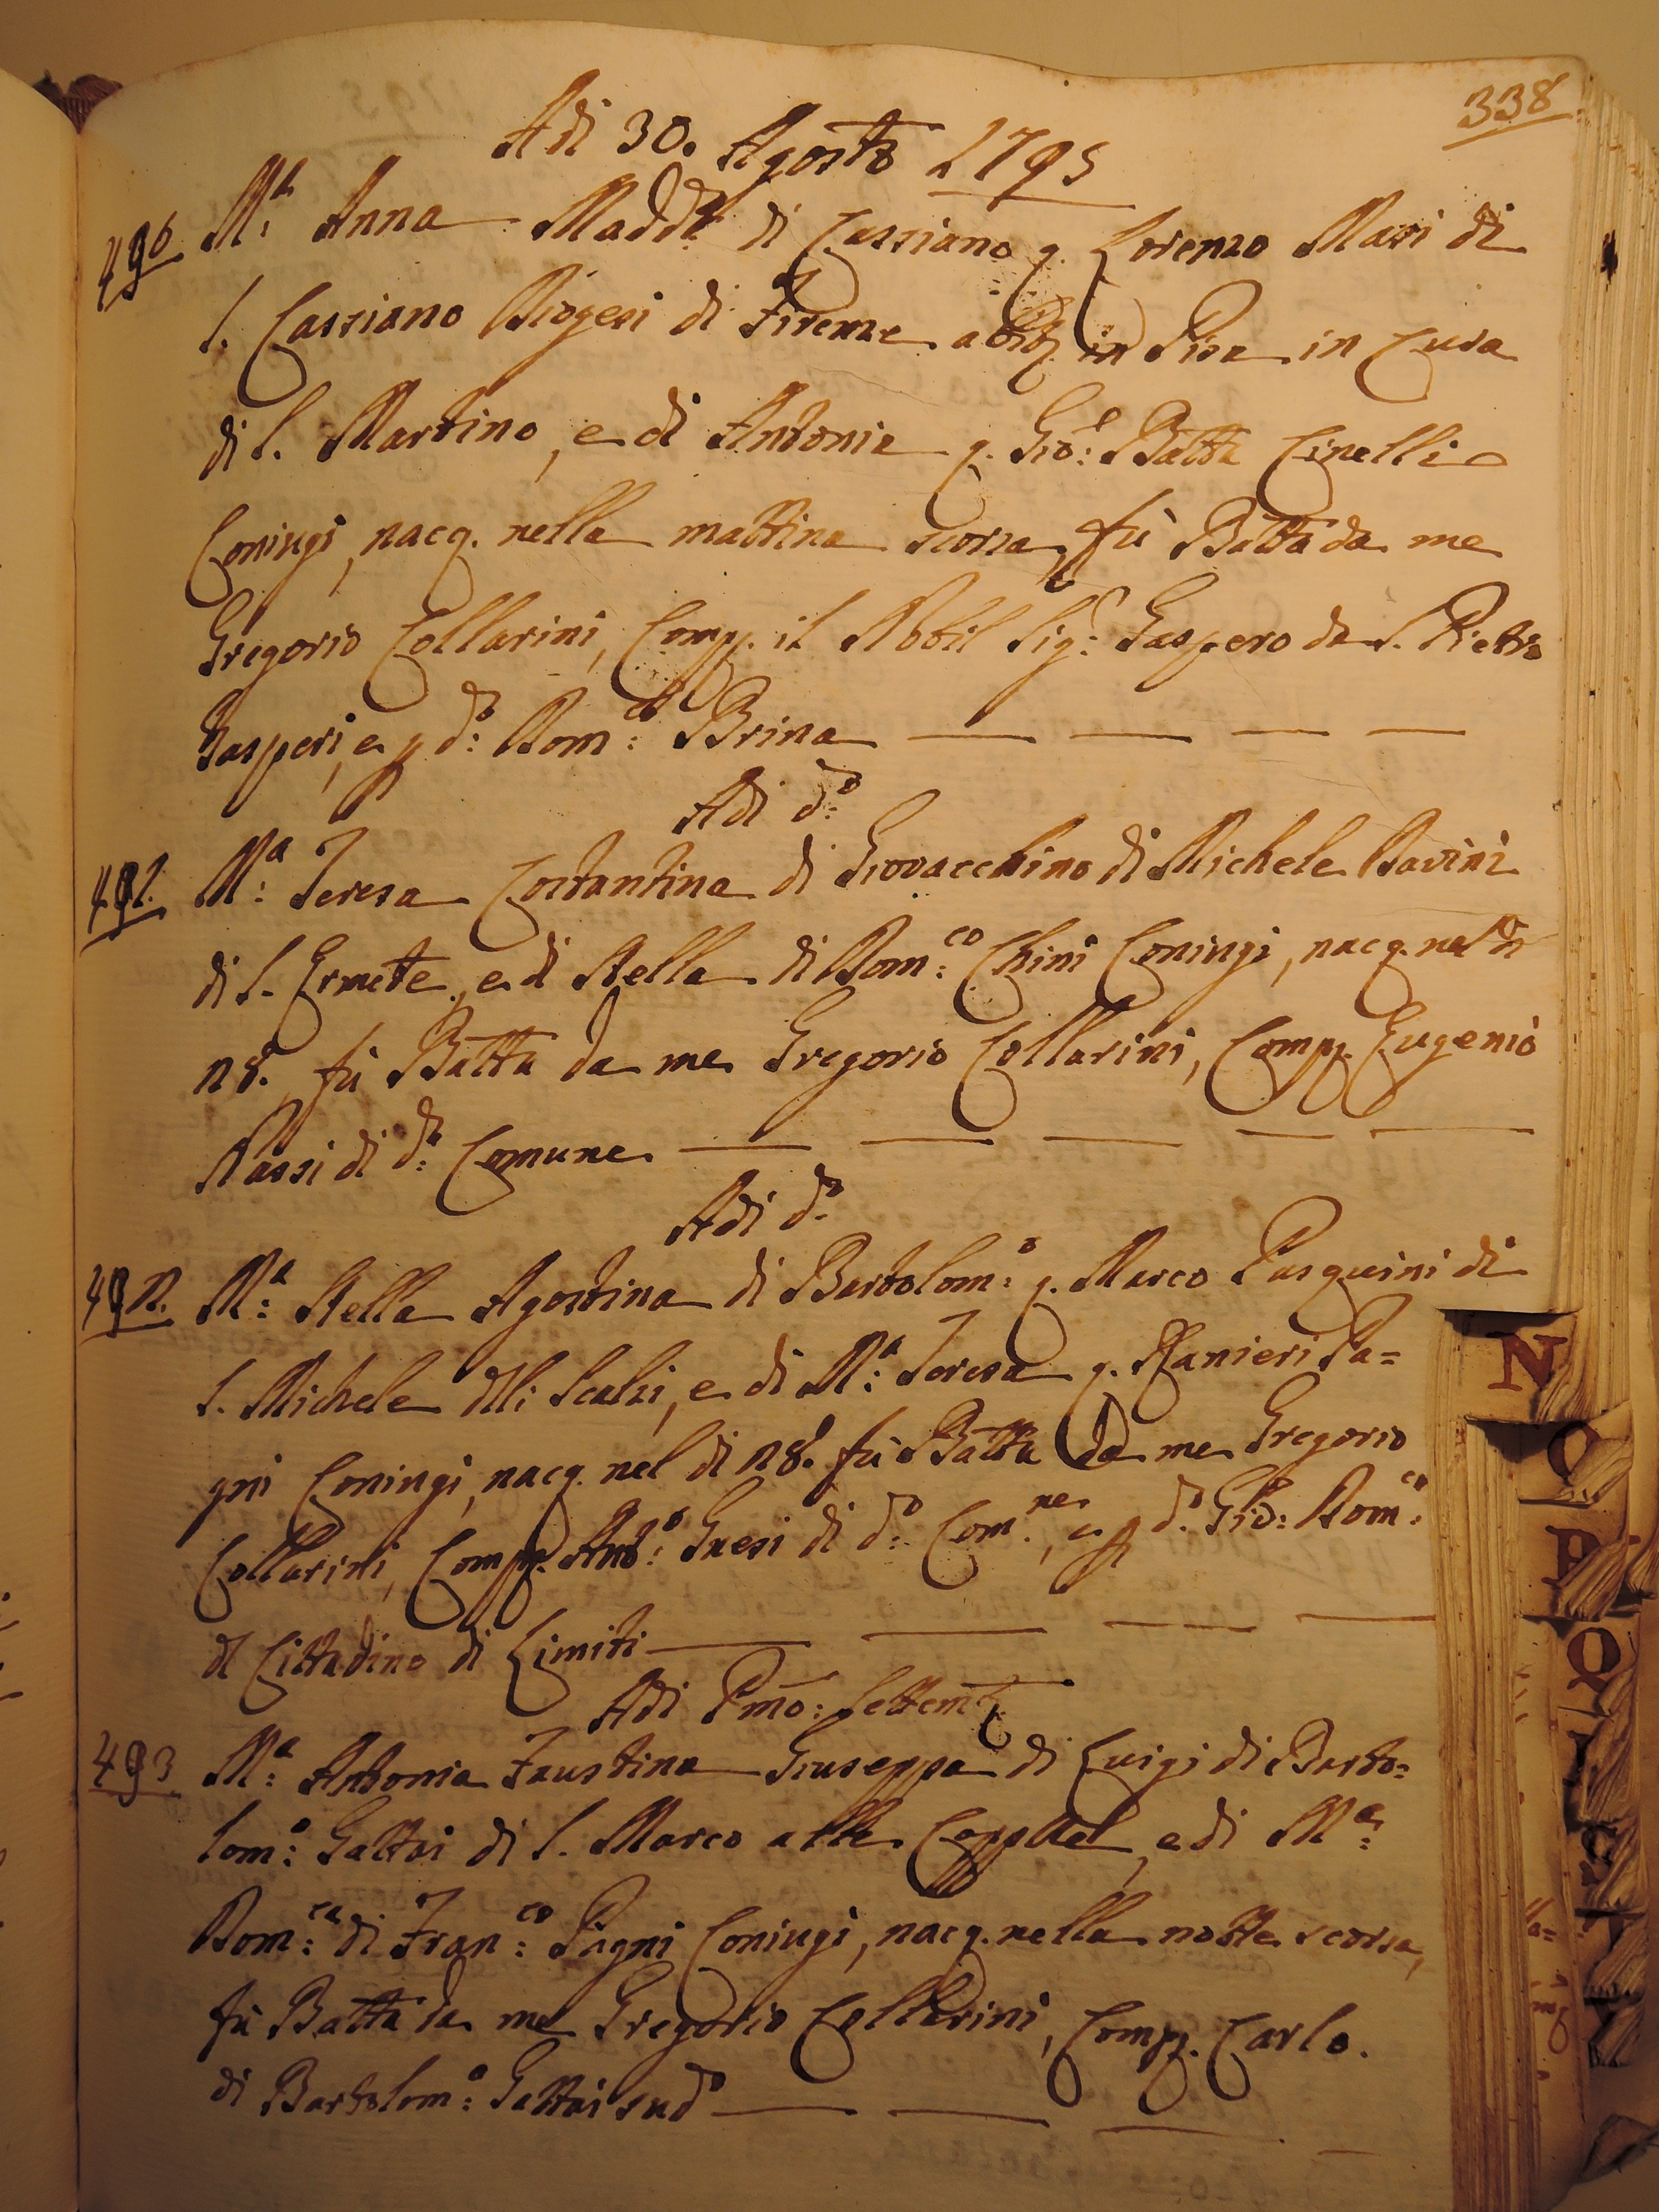 338
Adi 30. Agosto 1795
490 M.ª Anna Madd.ª di Cassiano q. Lorenzo Masi di
S. Cassiano Diogesi di Firenze abit. in Pisa in Cura
di S. Martino, e di Antonia q. Gio: Batta Cinelli
Coniugi, nacq. nella mattina scorsa, fù Batta da me
Gregorio Collarini, Comp. il Nobil Sig.r Gaspero da S. Pietro
Gasperi, e p d.º Dom.co Brina
Adi d.º
491. M.ª Teresa Costantina di Giovacchino di Michele Davini
di S. Ermete, e di Stella di Dom.co Chini Coniugi, nacq. nel dì
28. fù Batta da me Gregorio Collarini, Comp. Eugenio
Nassi di d.º Comune
Adi d.º
492. M.ª Stella Agostina di Bartolom.º q. Marco Pasquini di
S. Michele dlli Scalzi, e di M.ª Teresa q. Ranieri Pa=
gni Coniugi, nacq. nel dì 28. fù Batta da me Gregorio
Collarini, Comp. Ant.º Gnesi di d.º Com.ne, e p d.º Gio: Dom.co
dl Cittadino di Limiti
Adi Pmo: Settemb
493 M.ª Antonia Faustina Giuseppa di Luigi di Barto=
lom.º Gattai di S. Marco alle Cappelle, e di M.ª
Dom.ca di Fran.co Pagni Coniugi, nacq. nella notte scorsa,
fù Batta da me Gregorio Collarini, Comp. Carlo
di Bartolom.º Gattai sud.º
N
O
P
Q